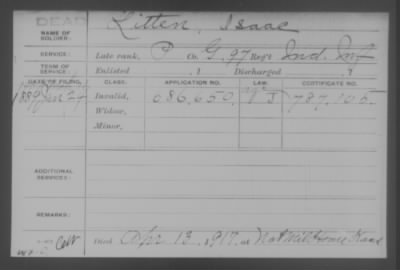 DEAD
NAME OF SOLDIER: Litten, Isaac
SERVICE: Late rank, P Co. G, 97 Reg't Ind. Inf
TERM OF SERVICE: Enlisted , 1 Discharged , 1
DATE OF FILING. CLASS. APPLICATION NO. LAW. CERTIFICATE NO.
1889 Invalid, 686,650 J 787,105
Widow,
Minor,
ADDITIONAL SERVICES:
REMARKS:
Died Apr 13, 1917, at Nat Mil Home Kans